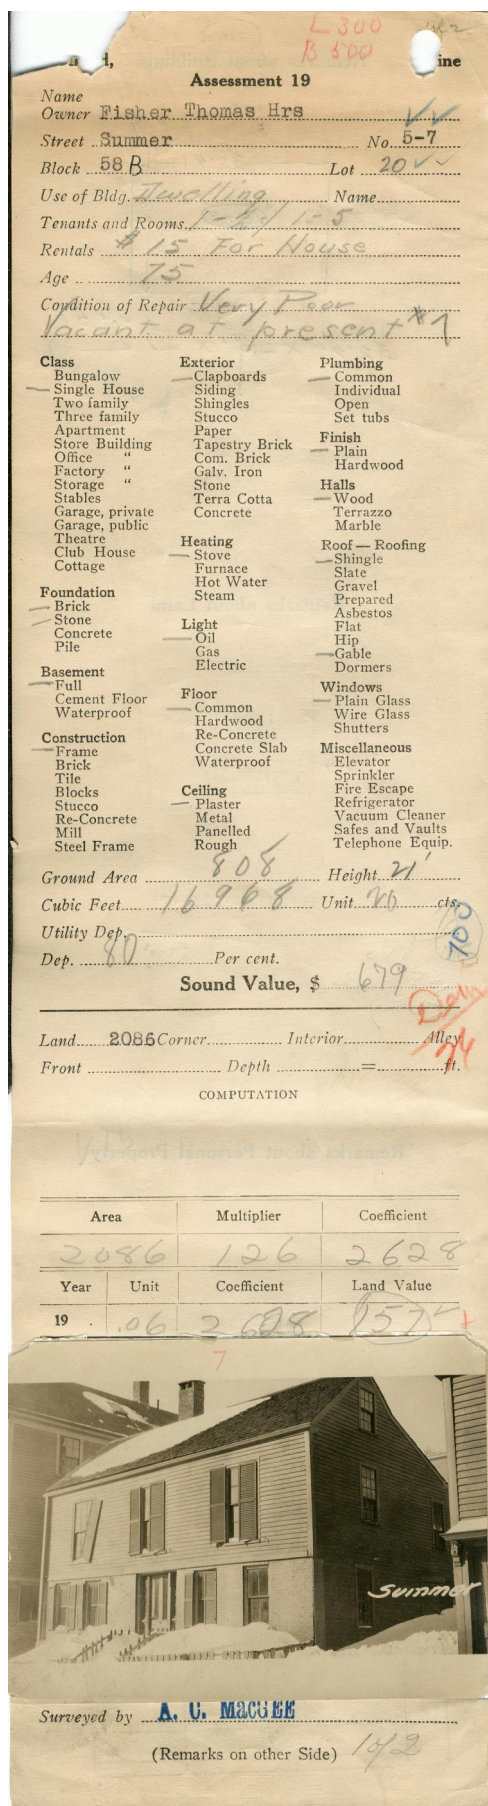 L 300
B 500
d, ine
Assessment 19
Name
Owner Fisher Thomas Hrs
Street Summer No. 5-7
Block 58 B Lot 20
Use of Bldg. Dwelling Name
Tenants and Rooms 1-5
Rentals $15 For House
Age 75
Condition of Repair Very Poor
Vacant at present #7
Class
Bungalow
Single House
Two family
Three family
Apartment
Store Building
Office "
Factory "
Storage "
Stables
Garage, private
Garage, public
Theatre
Club House
Cottage
Foundation
Brick
Stone
Concrete
Pile
Basement
Full
Cement Floor
Waterproof
Construction
Frame
Brick
Tile
Blocks
Stucco
Re-Concrete
Mill
Steel Frame
Exterior
Clapboards
Siding
Shingles
Stucco
Paper
Tapestry Brick
Com. Brick
Galv. Iron
Stone
Terra Cotta
Concrete
Heating
Stove
Furnace
Hot Water
Steam
Light
Oil
Gas
Electric
Floor
Common
Hardwood
Re-Concrete
Concrete Slab
Waterproof
Ceiling
Plaster
Metal
Panelled
Rough
Plumbing
Common
Individual
Open
Set tubs
Finish
Plain
Hardwood
Halls
Wood
Terrazzo
Marble
Roof — Roofing
Shingle
Slate
Gravel
Prepared
Asbestos
Flat
Hip
Gable
Dormers
Windows
Plain Glass
Wire Glass
Shutters
Miscellaneous
Elevator
Sprinkler
Fire Escape
Refrigerator
Vacuum Cleaner
Safes and Vaults
Telephone Equip.
Ground Area 808 Height 21'
Cubic Feet 16968 Unit 20 cts.
Utility Dep.
700
Dep. 80 Per cent.
Sound Value, $ 679
Land 2086 Corner Interior Alley
Front Depth = ft.
COMPUTATION
Remarks about Personal Property
Area Multiplier Coefficient
2086 126 2628
Year Unit Coefficient Land Value
19 .06 2628 157
7
Summer
Surveyed by A. C. MACGEE
(Remarks on other Side) 1 of 2